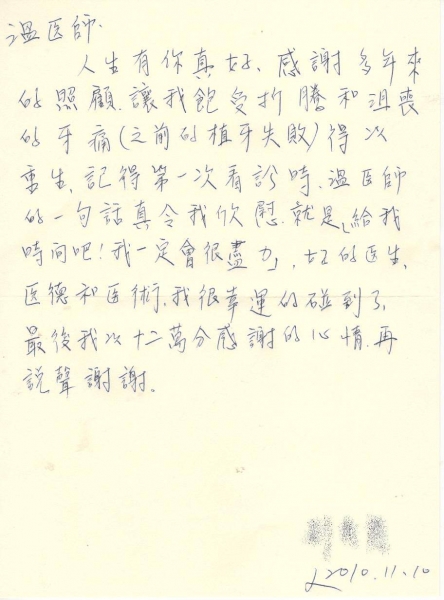 溫医師.
人生有你真好、感謝多年來
的照顧.讓我飽受折騰和沮喪
的牙痛(之前的植牙失敗)得以
重生.記得第一次看診時.溫医師
的一句話真令我欣慰.就是「給我
時间吧!我一定會很盡力」,好的医生,
医德和医術.我很幸運的碰到了.
最後我以十二萬分感謝的心情.再
說聲謝謝。
2010.11.10